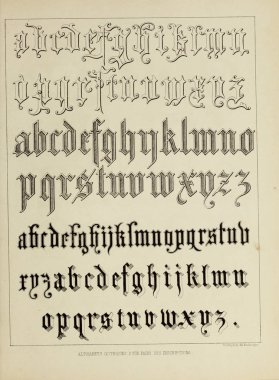 abcdefghijklmn
opqrstuvwxyz
abcdefghijklmno
pqrstuvwxyz
abcdefghijklmnopqrstuv
xyzabcdefghijklmn
opqrstuvwxyz.